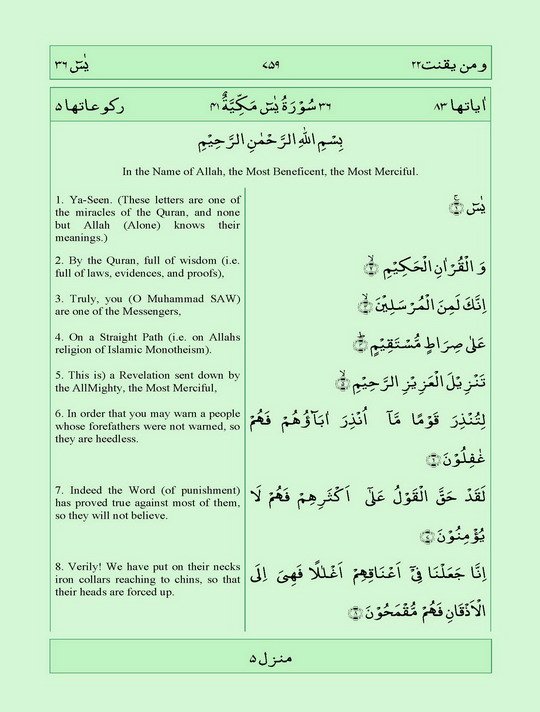 یٰسٓ ٣٦ ٧٥٩ ومن یقنت ٢٢
رکوعاتھا ٥ ٣٦ سُوْرَةُ یٰسٓ مَکِّیَّةٌ ٤١ اٰیاتھا ٨٣
بِسْمِ اللّٰهِ الرَّحْمٰنِ الرَّحِیْمِ
In the Name of Allah, the Most Beneficent, the Most Merciful.
1. Ya-Seen. (These letters are one of
the miracles of the Quran, and none
but Allah (Alone) knows their
meanings.)
یٰسٓ ۚ ﴿١﴾
2. By the Quran, full of wisdom (i.e.
full of laws, evidences, and proofs),
وَ الْقُرْاٰنِ الْحَکِیْمِ ۙ ﴿٢﴾
3. Truly, you (O Muhammad SAW)
are one of the Messengers,
اِنَّكَ لَمِنَ الْمُرْسَلِیْنَ ۙ ﴿٣﴾
4. On a Straight Path (i.e. on Allahs
religion of Islamic Monotheism).
عَلٰی صِرَاطٍ مُّسْتَقِیْمٍ ؕ ﴿٤﴾
5. This is) a Revelation sent down by
the AllMighty, the Most Merciful,
تَنْزِیْلَ الْعَزِیْزِ الرَّحِیْمِ ۙ ﴿٥﴾
6. In order that you may warn a people
whose forefathers were not warned, so
they are heedless.
لِتُنْذِرَ قَوْمًا مَّاۤ اُنْذِرَ اٰبَآؤُهُمْ فَهُمْ
غٰفِلُوْنَ ﴿٦﴾
7. Indeed the Word (of punishment)
has proved true against most of them,
so they will not believe.
لَقَدْ حَقَّ الْقَوْلُ عَلٰۤی اَکْثَرِهِمْ فَهُمْ لَا
یُؤْمِنُوْنَ ﴿٧﴾
8. Verily! We have put on their necks
iron collars reaching to chins, so that
their heads are forced up.
اِنَّا جَعَلْنَا فِیْۤ اَعْنَاقِهِمْ اَغْلٰلًا فَهِیَ اِلَی
الْاَذْقَانِ فَهُمْ مُّقْمَحُوْنَ ﴿٨﴾
منزل ٥